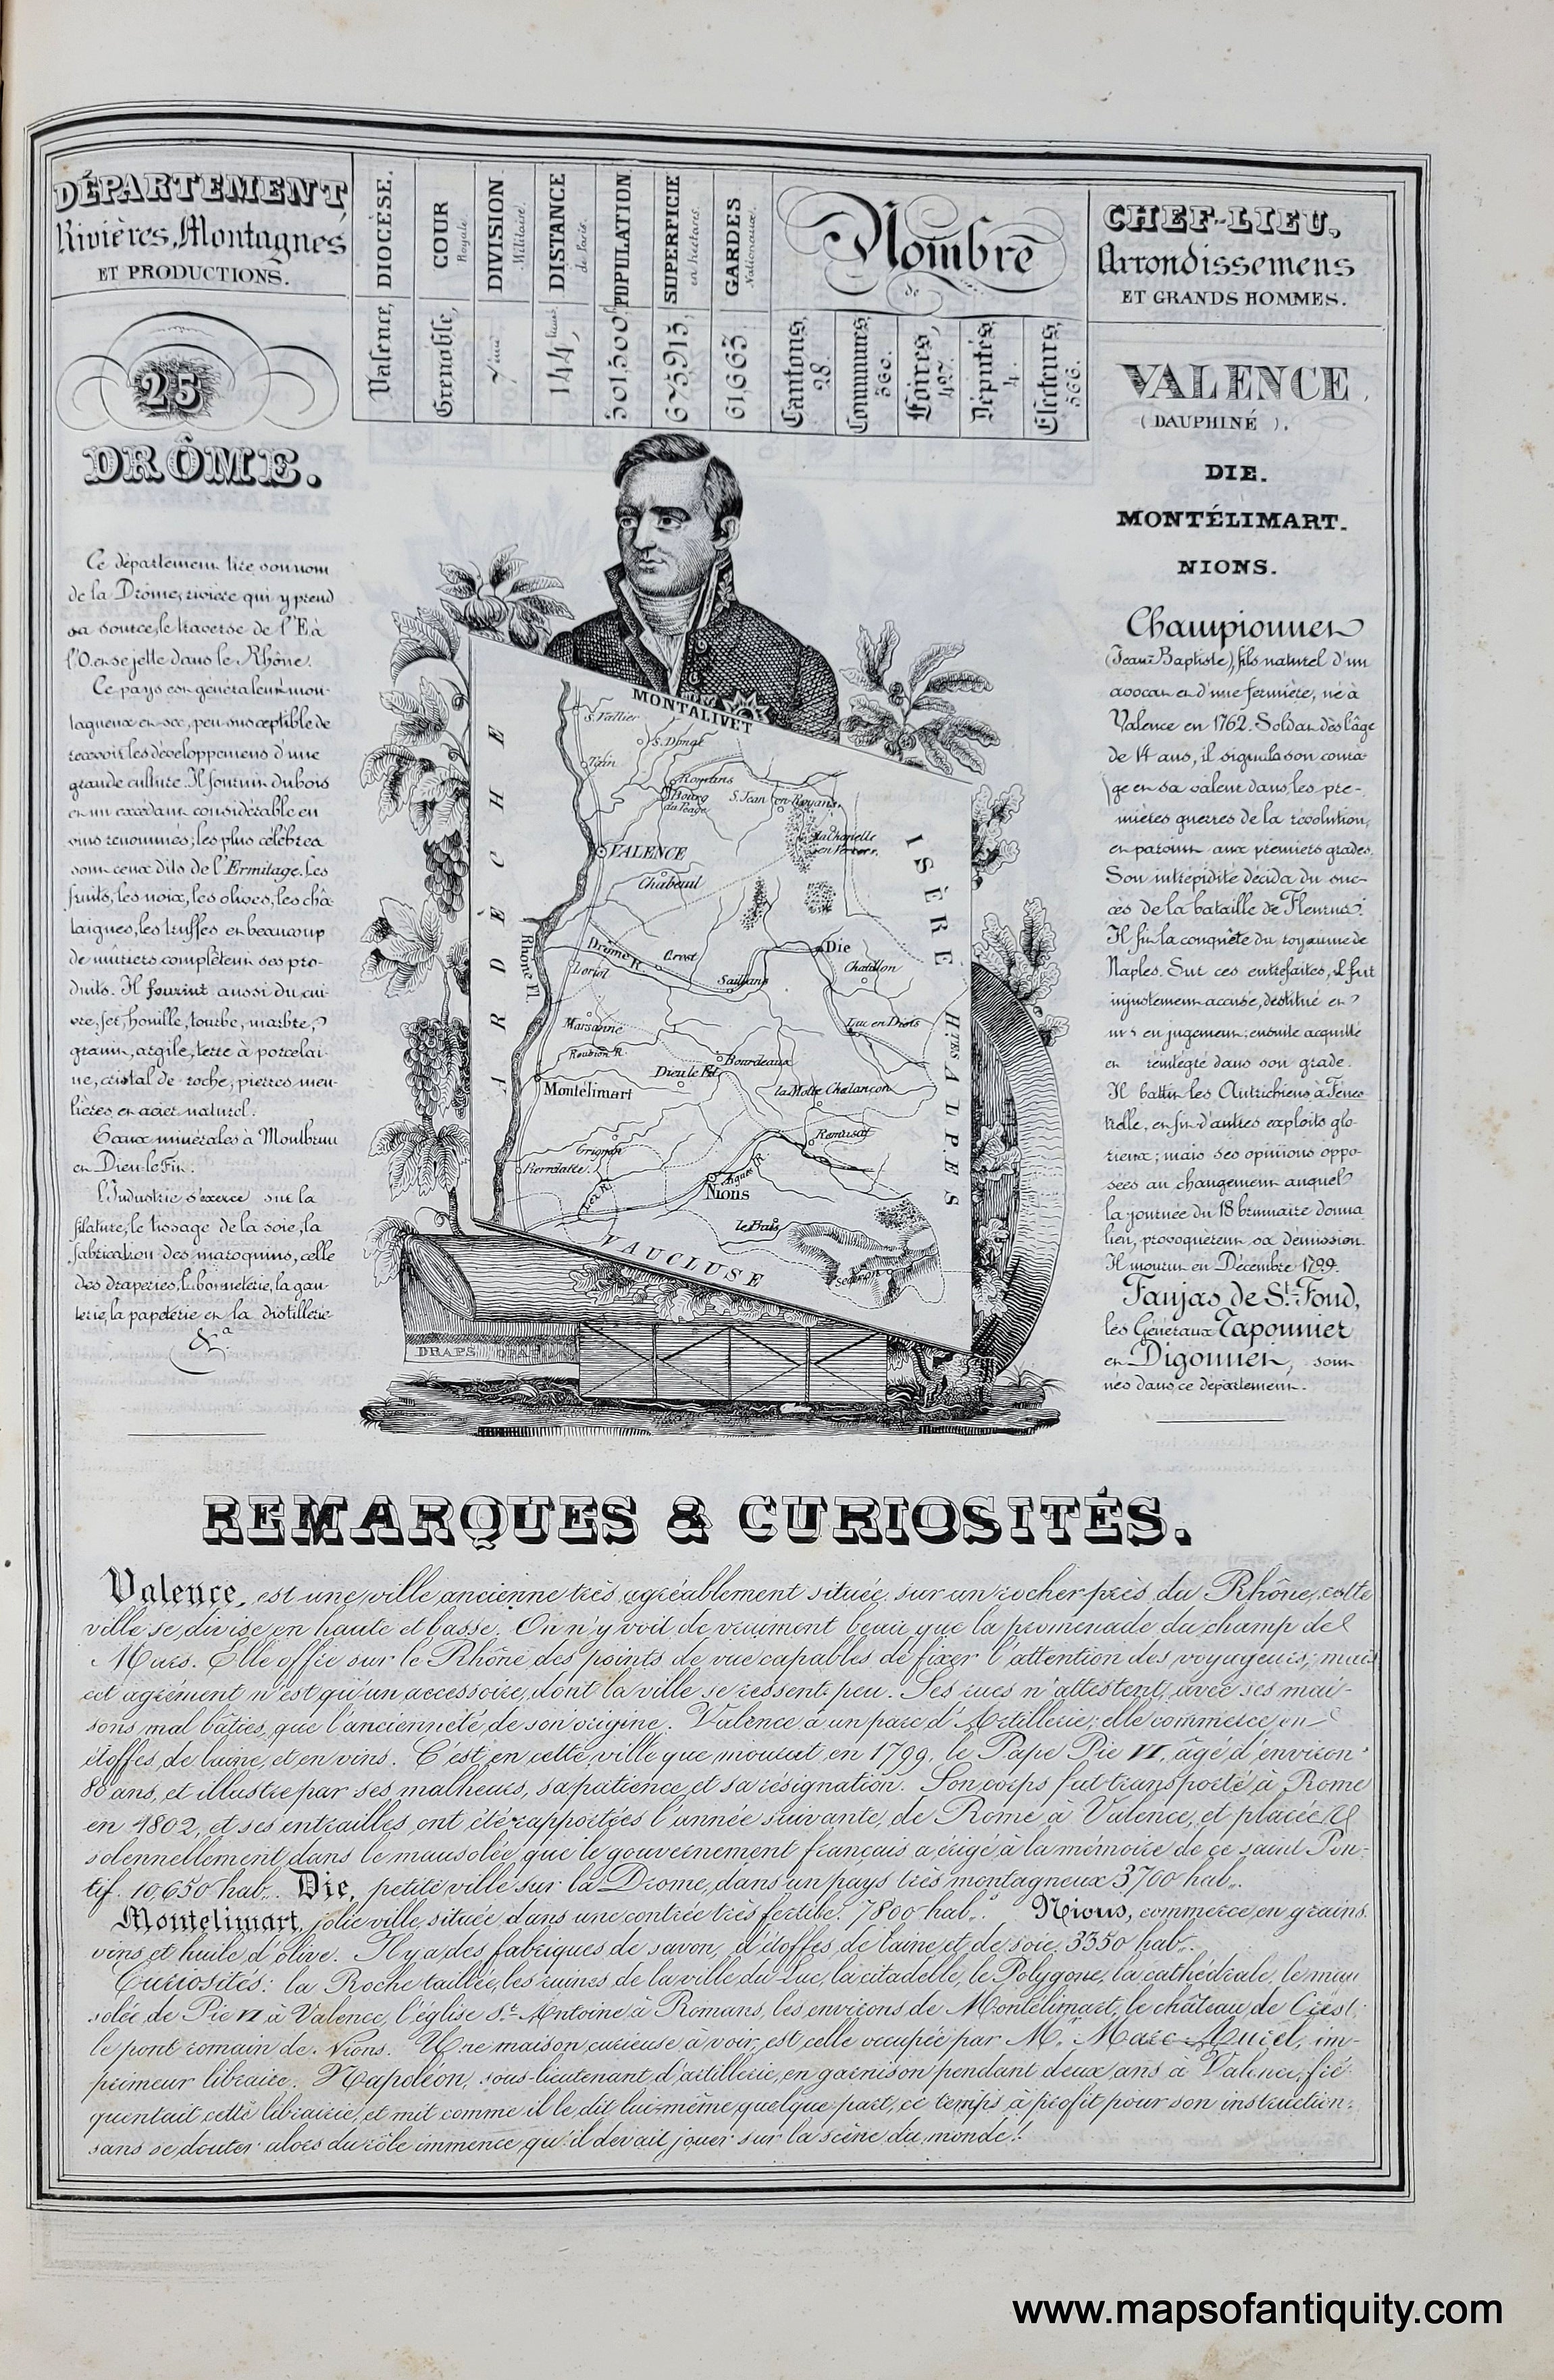 DÉPARTEMENT
Rivières, Montagnes
ET PRODUCTIONS.
DIOCÈSE.
Valence,
COUR
Royale
Grenoble,
DIVISION
Militaire.
7ème
DISTANCE
de Paris.
144
POPULATION
SUPERFICIE
en hectares.
675,915,
GARDES
Nationaux.
61,663.
Nombre
de
Cantons,
28.
Communes,
360.
Foires,
427.
Députés,
4.
Electeurs,
566.
CHEF-LIEU,
Arrondissemens
ET GRANDS HOMMES.
25
DRÔME.
Ce département tire son nom
de la Drôme, rivière qui y prend
sa source, le traverse de l'E à
l'O. et se jette dans le Rhône.
Ce pays est généralement mon-
tagneux et sec, peu susceptible de
recevoir les développemens d'une
grande culture. Il fournit du bois
et un excédant considérable en
vins renommés; les plus célèbres
sont ceux dits de l'Ermitage. Les
fruits, les noix, les olives, les châ-
taignes, les truffes et beaucoup
de mûriers complètent ses pro-
duits. Il fournit aussi du cui-
vre, fer, houille, tourbe, marbre,
granit, argile, terre à porcelai-
ne, cristal de roche, pierres meu-
lières, et acier naturel.
Eaux minérales à Montbrun
et Dieu-le-Fit.
L'Industrie s'exerce sur la
filature, le tissage de la soie, la
fabrication des maroquins, celle
des draperies, la bonneterie, la gan-
terie, la papeterie et la distillerie
&a.
VALENCE,
(DAUPHINÉ).
DIE.
MONTÉLIMART.
NIONS.
Championnet
(Jean-Baptiste), fils naturel d'un
avocat et d'une fermière, né à
Valence en 1762. Soldat dès l'âge
de 14 ans, il signala son coura-
ge et sa valeur dans les pre-
mières guerres de la révolution,
et parvint aux premiers grades.
Son intrépidité décida du suc-
cès de la bataille de Fleurus.
Il fit la conquête du royaume de
Naples. Sur ces entrefaites, il fut
injustement accusé, destitué et
mis en jugement; ensuite acquitté
et réintégré dans son grade.
Il battit les Autrichiens à Fenes-
trelle, et fit d'autres exploits glo-
rieux; mais ses opinions oppo-
sées au changement auquel
la journée du 18 brumaire donna
lieu, provoquèrent sa démission.
Il mourut en Décembre 1799.
Faujas de St. Fond,
les Généraux Taponnier
et Digonnet, sont
nés dans ce département.
MONTALIVET
ARDÈCHE
ISÈRE
Htes ALPES
VAUCLUSE
S. Vallier
S. Donat
Tain
Romans
Bourg du Péage
S. Jean en Royans
la Chapelle en Vercors
VALENCE
Chabeuil
Rhône Fl.
Drôme R.
Loriol
Crest
Saillans
Die
Chatillon
Luc en Diois
Marsanne
Roubion R.
Bourdeaux
Dieu le Fit
la Motte Chalançon
Montélimart
Remusat
Grignan
Pierrelatte
Aigues R.
Nions
le Buis
Sederon
DRAPS
REMARQUES & CURIOSITÉS.
Valence, est une ville ancienne très agréablement située sur un rocher près du Rhône, cette
ville se divise en haute et basse. On n'y voit de vraiment beau que la promenade du champ de
Mars. Elle offre sur le Rhône des points de vue capables de fixer l'attention des voyageurs; mais
cet agrément n'est qu'un accessoire, dont la ville se ressent peu. Ses rues n'attestent, avec ses mai-
sons mal bâties, que l'ancienneté de son origine. Valence a un parc d'Artillerie; elle commerce en
étoffes de laine, et en vins. C'est en cette ville que mourut en 1799, le Pape Pie VI, âgé d'environ
80 ans, et illustre par ses malheurs, sa patience et sa résignation. Son corps fut transporté à Rome
en 1802, et ses entrailles ont été rapportées l'année suivante, de Rome à Valence, et placées
solennellement dans le mausolée que le gouvernement français a érigé à la mémoire de ce saint Pon-
tif. 10,650 hab.. Die, petite ville sur la Drome, dans un pays très montagneux 3700 hab..
Montelimart, jolie ville, située dans une contrée très fertile. 7800 hab.. Nions, commerce en grains,
vins et huile d'olive. Il y a des fabriques de savon, d'étoffes de laine et de soie. 3350 hab..
Curiosités: la Roche taillée, les ruines de la ville du Luc, la citadelle, le Polygone, la cathédrale, le mau-
solée de Pie VI à Valence, l'église St. Antoine à Romans, les environs de Montélimart, le château de Crest,
le pont romain de Nions. Une maison curieuse à voir, est celle occupée par Mr. Marc-Aurel, im-
primeur libraire. Napoléon, sous-lieutenant d'artillerie, en garnison pendant deux ans à Valence, fré-
quentait cette librairie, et mit comme il le dit lui-même quelque part, ce temps à profit pour son instruction,
sans se douter alors du rôle immence qu'il devait jouer sur la scène du monde!
www.mapsofantiquity.com